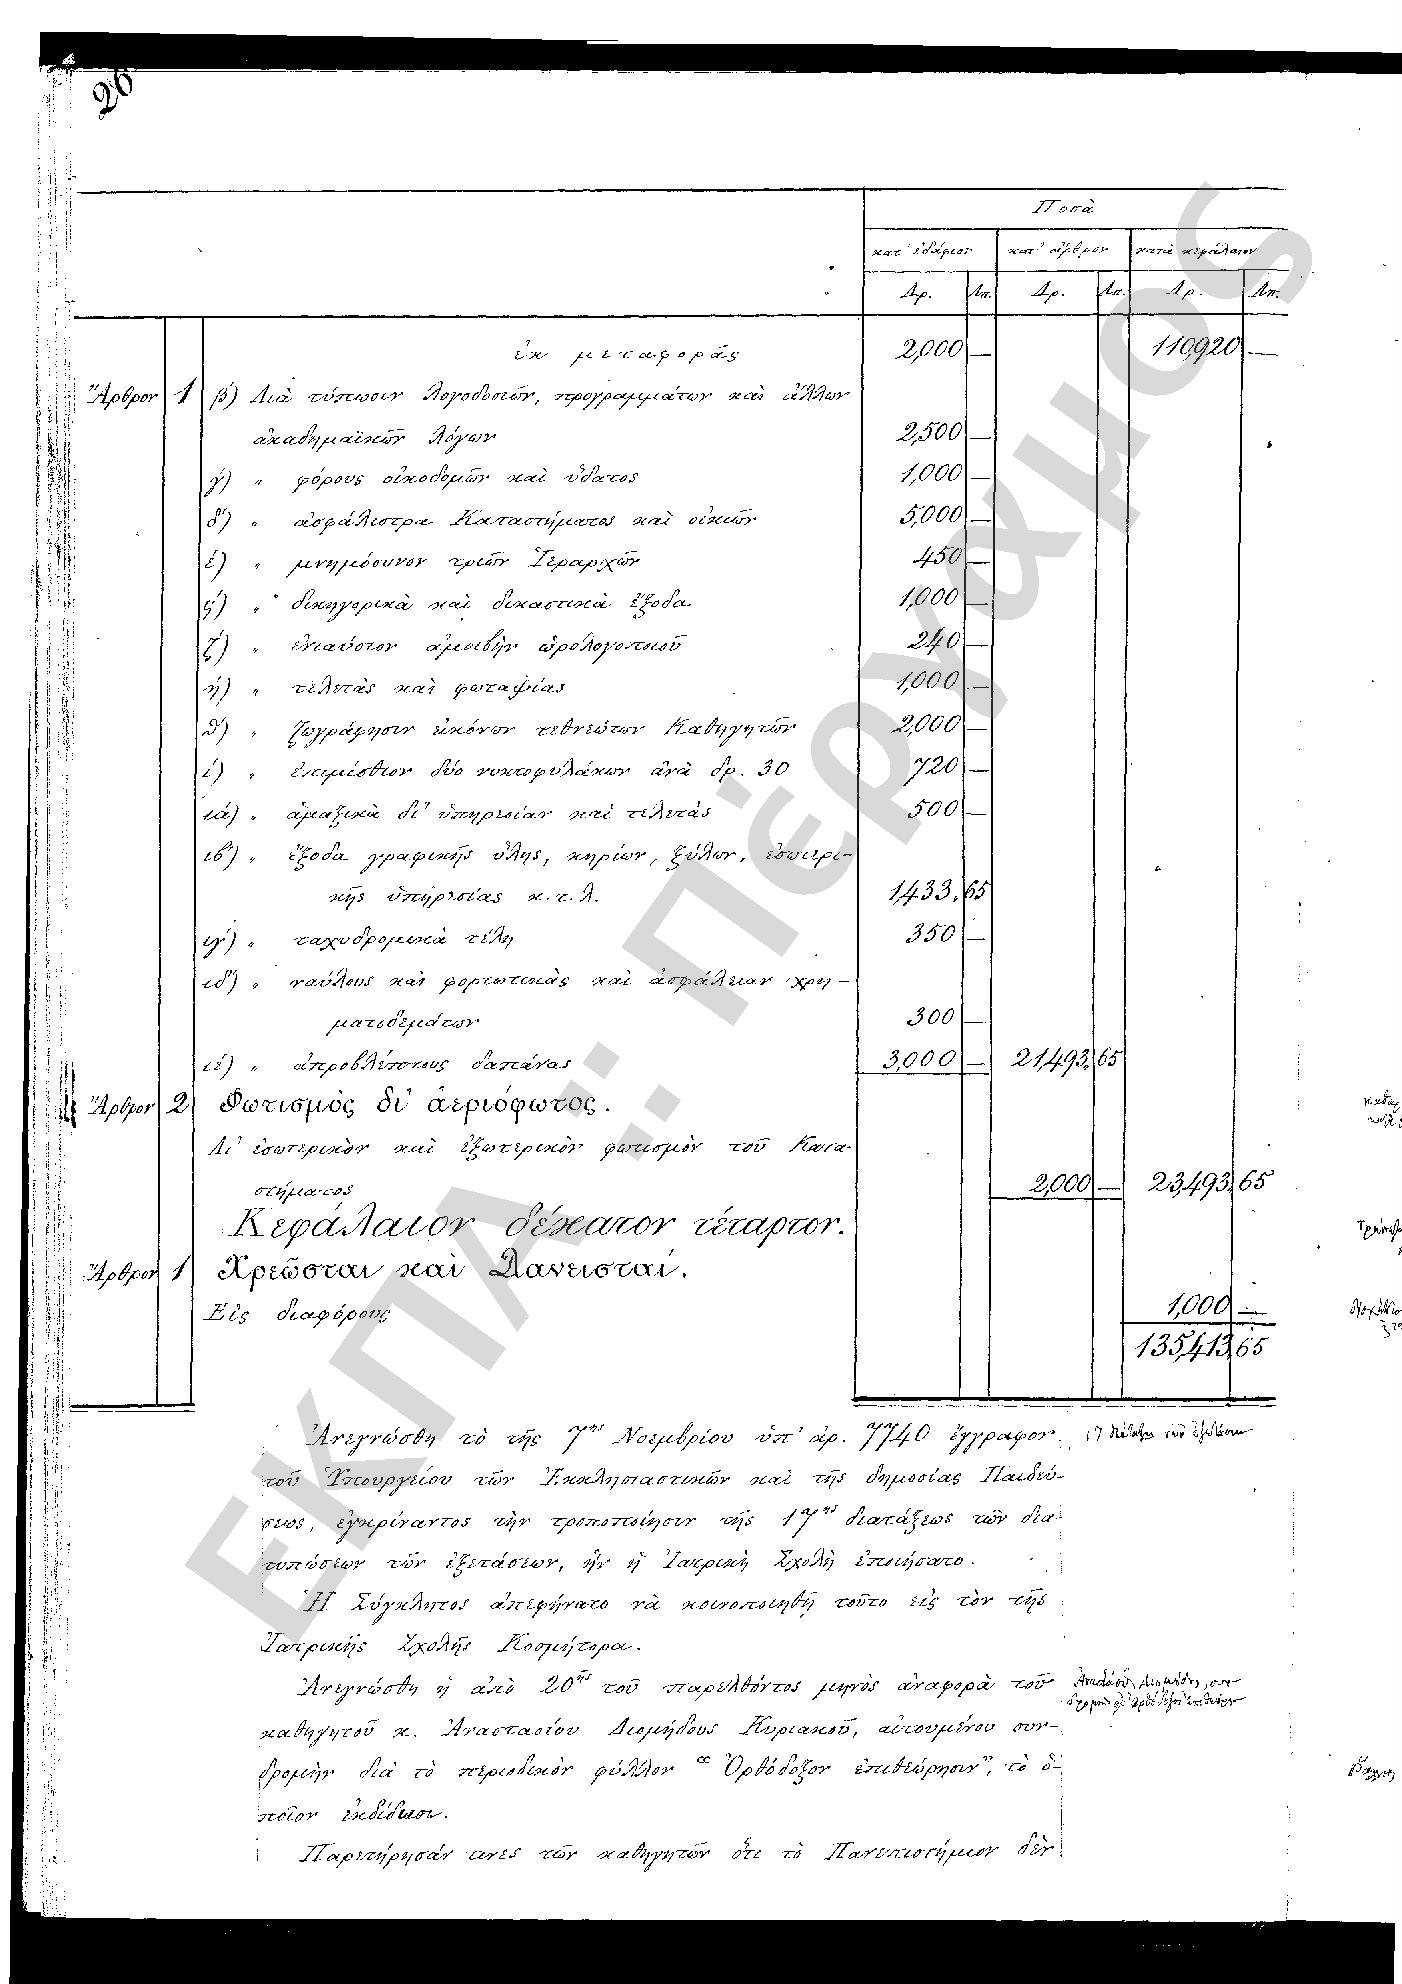 26
Ποσὰ
κατ' ἐδάφιον κατ' ἄρθρον κατὰ κεφάλαιον
Δρ. Λπ. Δρ. Λπ. Δρ. Λπ.
ἐκ μεταφορᾶς 2,000 — 110,920 —
Ἄρθρον 1 β') Διὰ τύπωσιν λογοδοσιῶν, προγραμμάτων καὶ ἄλλων
ἀκαδημαϊκῶν λόγων 2,500 —
γ') " φόρους οἰκοδομῶν καὶ ὕδατος 1,000 —
δ') " ἀσφάλιστρα Καταστήματος καὶ οἰκιῶν 5,000 —
έ) " μνημόσυνον τριῶν Ἱεραρχῶν 450 —
ς') " δικηγορικὰ καὶ δικαστικὰ ἔξοδα 1,000 —
ζ') " ἐνιαύσιον ἀμοιβὴν ὡρολογοποιοῦ 240 —
ή) " τελετὰς καὶ φωταψίας 1,000 —
θ') " ζωγράφησιν εἰκόνων τεθνεώτων Καθηγητῶν 2,000 —
ί) " ἐπιμίσθιον δύο νυκτοφυλάκων ἀνὰ δρ. 30 720 —
ιά) " ἁμαξικὰ δι' ὑπηρεσίαν καὶ τελετὰς 500 —
ιβ') " ἔξοδα γραφικῆς ὕλης, κηρίων, ξύλων, ἐσωτερι-
κῆς ὑπηρεσίας κ.τ.λ. 1,433,65
ιγ') " ταχυδρομικὰ τέλη 350 —
ιδ') " ναύλους καὶ φορτωτικὰς καὶ ἀσφάλειαν χρη-
ματοδεμάτων 300 —
ιέ) " ἀπροβλέπτους δαπάνας 3,000 — 21,493,65
Ἄρθρον 2 Φωτισμὸς δι' ἀεριόφωτος.
Δι' ἐσωτερικὸν καὶ ἐξωτερικὸν φωτισμὸν τοῦ Κατα-
στήματος 2,000 — 23,493,65
Κεφάλαιον δέκατον τέταρτον.
Ἄρθρον 1 Χρεῶσται καὶ Δανεισταί.
Εἰς διαφόρους 1,000 —
135,413,65
Ἀνεγνώσθη τὸ τῆς 7ης Νοεμβρίου ὑπ' ἀρ. 7740 ἔγγραφον
τοῦ Ὑπουργείου τῶν Ἐκκλησιαστικῶν καὶ τῆς δημοσίας Παιδεύ-
σεως, ἐγκρίναντος τὴν τροποποίησιν τῆς 17ης διατάξεως τῶν δια
τυπώσεων τῶν ἐξετάσεων, ἣν ἡ Ἰατρικὴ Σχολὴ ἐποιήσατο.
Ἡ Σύγκλητος ἀπεφήνατο νὰ κοινοποιηθῇ τοῦτο εἰς τὸν τῆς
Ἰατρικῆς Σχολῆς Κοσμήτορα.
Ἀνεγνώσθη ἡ ἀπὸ 20ῆς τοῦ παρελθόντος μηνὸς ἀναφορὰ τοῦ
καθηγητοῦ κ. Ἀναστασίου Διομήδους Κυριακοῦ, αἰτουμένου συν-
δρομὴν διὰ τὸ περιοδικὸν φύλλον "Ὀρθόδοξον ἐπιθεώρησιν", τὸ ὁ-
ποῖον ἐκδίδωσι.
Παρετήρησάν τινες τῶν καθηγητῶν ὅτι τὸ Πανεπιστήμιον δὲν
ΕΚΠΑ :: Πέργαμος